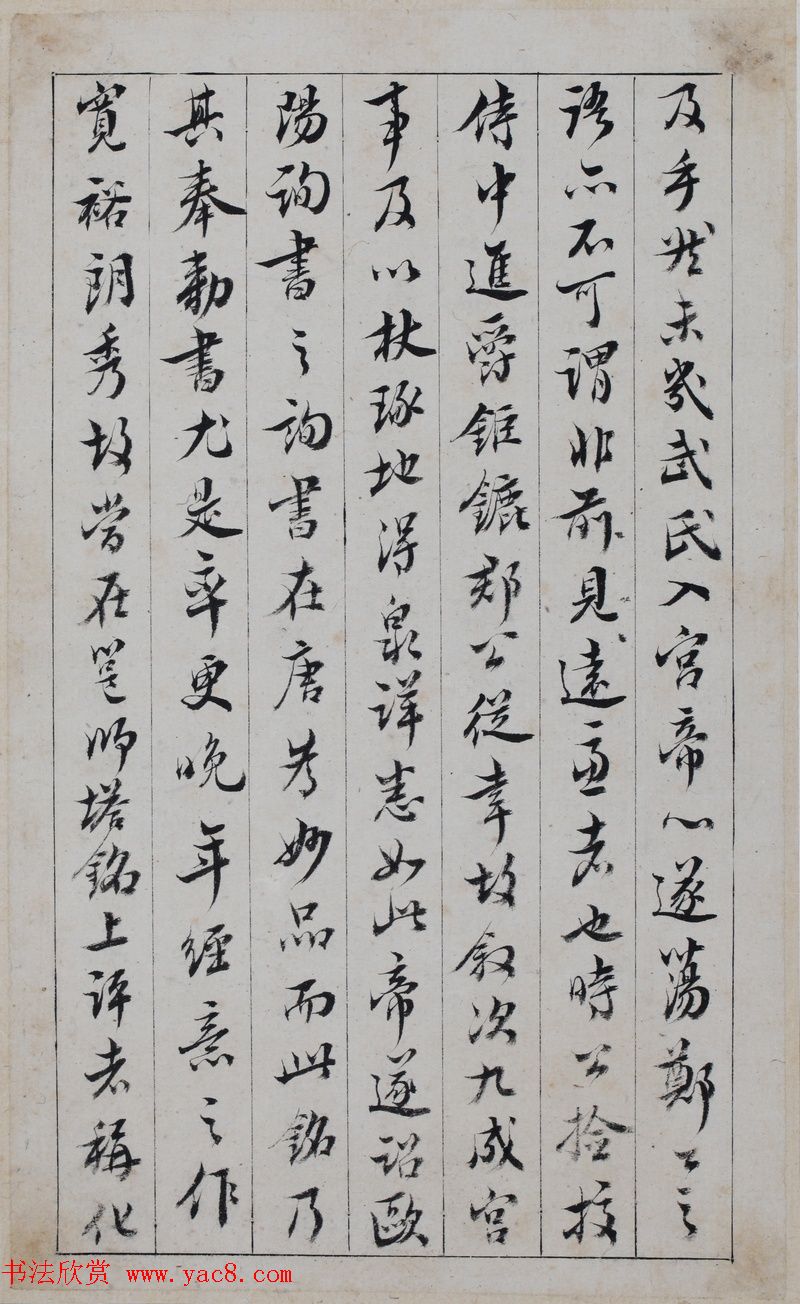 及手然未幾武氏入宮帝心遂蕩鄭公之
語亦不可謂非前見遠慮者也時公撿挍
侍中進爵鉅鏕郡公從幸故敘次九成宮
事及以杖琢地得泉詳悉如此帝遂詔歐
陽詢書之詢書在唐為妙品而此銘乃
其奉勑書尤是率更晚年經意之作
寬裕朗秀故當在邕師塔銘上評者稱化
书法欣赏 www.yac8.com